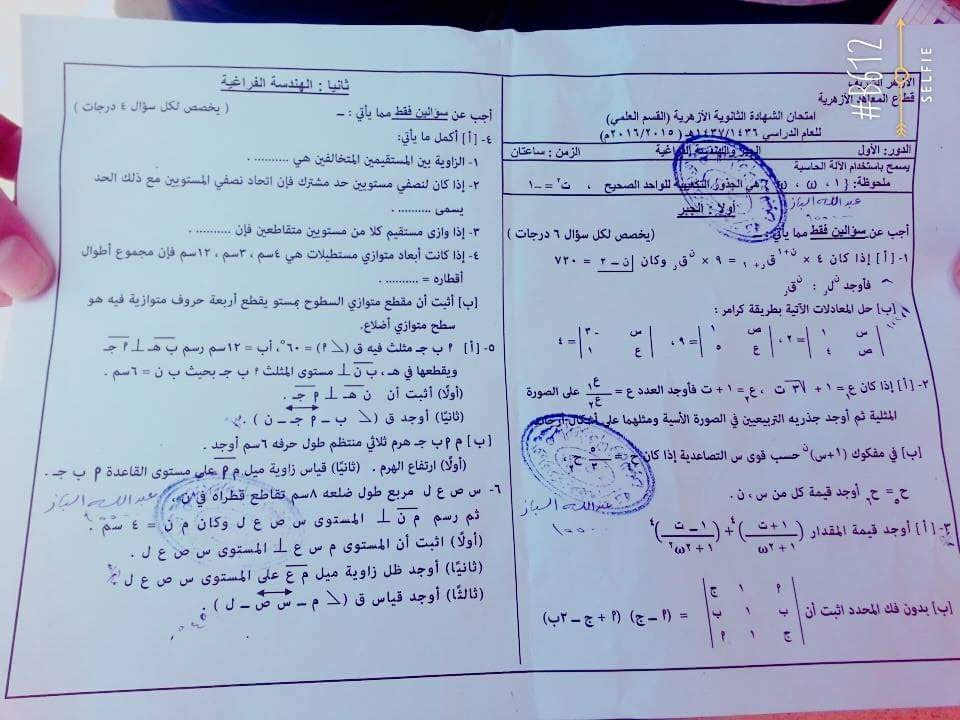 الأزهر الشريف
قطاع المعاهد الأزهرية
امتحان الشهادة الثانوية الأزهرية (القسم العلمي)
للعام الدراسي ١٤٣٧/١٤٣٦هـ (٢٠١٦/٢٠١٥م)
الدور: الأول الجبر والهندسة الفراغية الزمن: ساعتان
يسمح باستخدام الآلة الحاسبة
ملحوظة: { ١ ، ω ، ω٢ } هي الجذور التكعيبية للواحد الصحيح ، ت٢ = –١
عبد الله الباز
أولا : الجبر
أجب عن سؤالين فقط مما يأتي: – (يخصص لكل سؤال ٦ درجات )
١- [أ] إذا كان ٤ × ن+١ق ر+١ = ٩ × نق ر وكان ن – ٢ = ٧٢٠
فأوجد نل ر : نق ر
[ب] حل المعادلات الآتية بطريقة كرامر :
| س ١ ص ٤ | = ٢ ، | ص ١ ع ٥ | = ٩ ، | س –٣ ع ١ | = ٤
٢- [أ] إذا كان ع١ = ١ + √٣ ت ، ع٢ = ١ + ت فأوجد العدد ع = ع١/ع٢ على الصورة
المثلية ثم أوجد جذريه التربيعين في الصورة الأسية ومثلهما على
[ب] في مفكوك (١+س)ن حسب قوى س التصاعدية إذا كان
أوجد قيمة كل من س ، ن .
عبد الله الباز
٣- [أ] أوجد قيمة المقدار ((١+ت)/(١+ω٢))٤ + ((١–ت)/(١+ω٢٢))٤
[ب] بدون فك المحدد اثبت أن | م ١ ج ب ١ ب ج ١ م | = (م – ج) (م + ج – ٢ب)
ثانيا : الهندسة الفراغية
أجب عن سؤالين فقط مما يأتي: – ( يخصص لكل سؤال ٤ درجات )
٤- [أ] أكمل ما يأتي:
١- الزاوية بين المستقيمين المتخالفين هي ..........
٢- إذا كان لنصفي مستويين حد مشترك فإن اتحاد نصفي المستويين مع ذلك الحد
يسمى ..........
٣- إذا وازى مستقيم كلا من مستويين متقاطعين فإن .......... .
٤- إذا كانت أبعاد متوازي مستطيلات هي ٤سم ، ٣سم ، ١٢سم فإن مجموع أطوال
أقطاره = .......... .
[ب] أثبت أن مقطع متوازي السطوح بمستو يقطع أربعة حروف متوازية فيه هو
سطح متوازي أضلاع.
٥- [أ] م ب جـ مثلث فيه ق (∠ م) = ٦٠°، أب = ١٢سم رسم ب هـ ⊥ م جـ
ويقطعها في هـ ، ب ن ⊥ مستوى المثلث م ب جـ بحيث ب ن = ٦سم .
(أولا) أثبت أن ن هـ ⊥ م جـ .
(ثانيا) أوجد ق (∠ ب – م جـ – ن ) .
[ب] م م ب جـ هرم ثلاثي منتظم طول حرفه ٦سم أوجد .
(أولا) ارتفاع الهرم . (ثانيا) قياس زاوية ميل م م على مستوى القاعدة م ب جـ .
٦- س ص ع ل مربع طول ضلعه ٨سم تقاطع قطراه في ن .
عبد الله الباز
ثم رسم م ن ⊥ المستوى س ص ع ل وكان م ن = ٤ سم .
(أولا) اثبت أن المستوى م س ع ⊥ المستوى س ص ع ل .
(ثانيا) أوجد ظل زاوية ميل م ع على المستوى س ص ع ل .
(ثالثا) أوجد قياس ق (∠ م – س ص – ل ) .
#B612
SELFIE